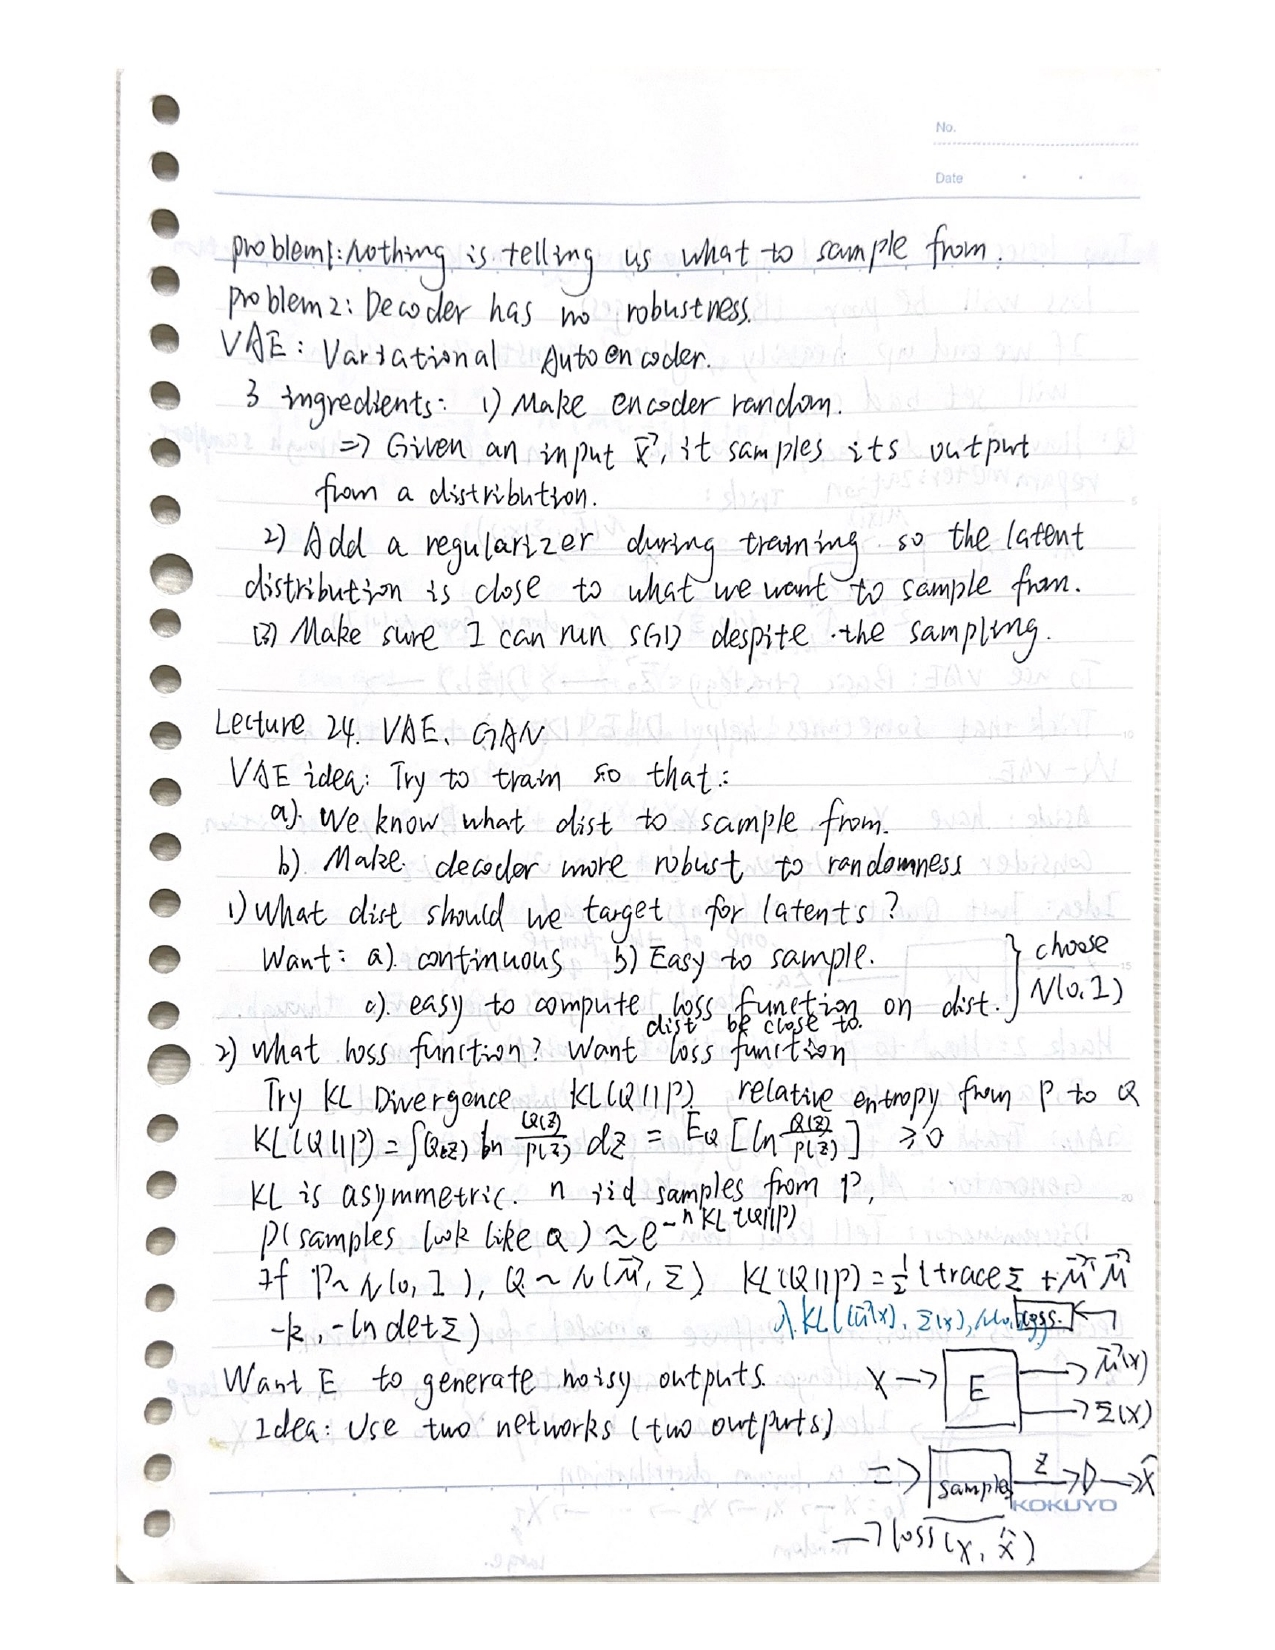 No.
Date
problem1: Nothing is telling us what to sample from.
problem2: Decoder has no robustness.
VAE: Variational Autoencoder.
3 ingredients: 1) Make encoder random.
=> Given an input x⃗, it samples its output
from a distribution.
2) Add a regularizer during training so the latent
distribution is close to what we want to sample from.
(3) Make sure I can run SGD despite the sampling.
Lecture 24. VAE, GAN
VAE idea: Try to train so that:
a). We know what dist to sample from.
b). Make decoder more robust to randomness
1) What dist should we target for latents?
Want: a). continuous b) Easy to sample. } choose
c). easy to compute loss function on dist. N(0,I)
dist be close to
2) What loss function? Want loss function
Try KL Divergence KL(Q||P) relative entropy from P to Q
KL(Q||P) = ∫Q(z) ln Q(z)/P(z) dz = E_Q [ln Q(z)/P(z)] ≥0
KL is asymmetric. n iid samples from P,
P(samples look like Q) ≈ e^{-n KL(Q||P)}
If P~N(0,I), Q~N(μ⃗,Σ) KL(Q||P) = ½(trace Σ + μ⃗ᵀμ⃗
-k, -ln det Σ) λ KL((μ⃗(x), Σ(x), N(0, loss.
Want E to generate noisy outputs. X → E → μ⃗(x)
Idea: Use two networks (two outputs) → Σ(x)
=> samples z → D → x̂
KOKUYO
→ loss(x, x̂)